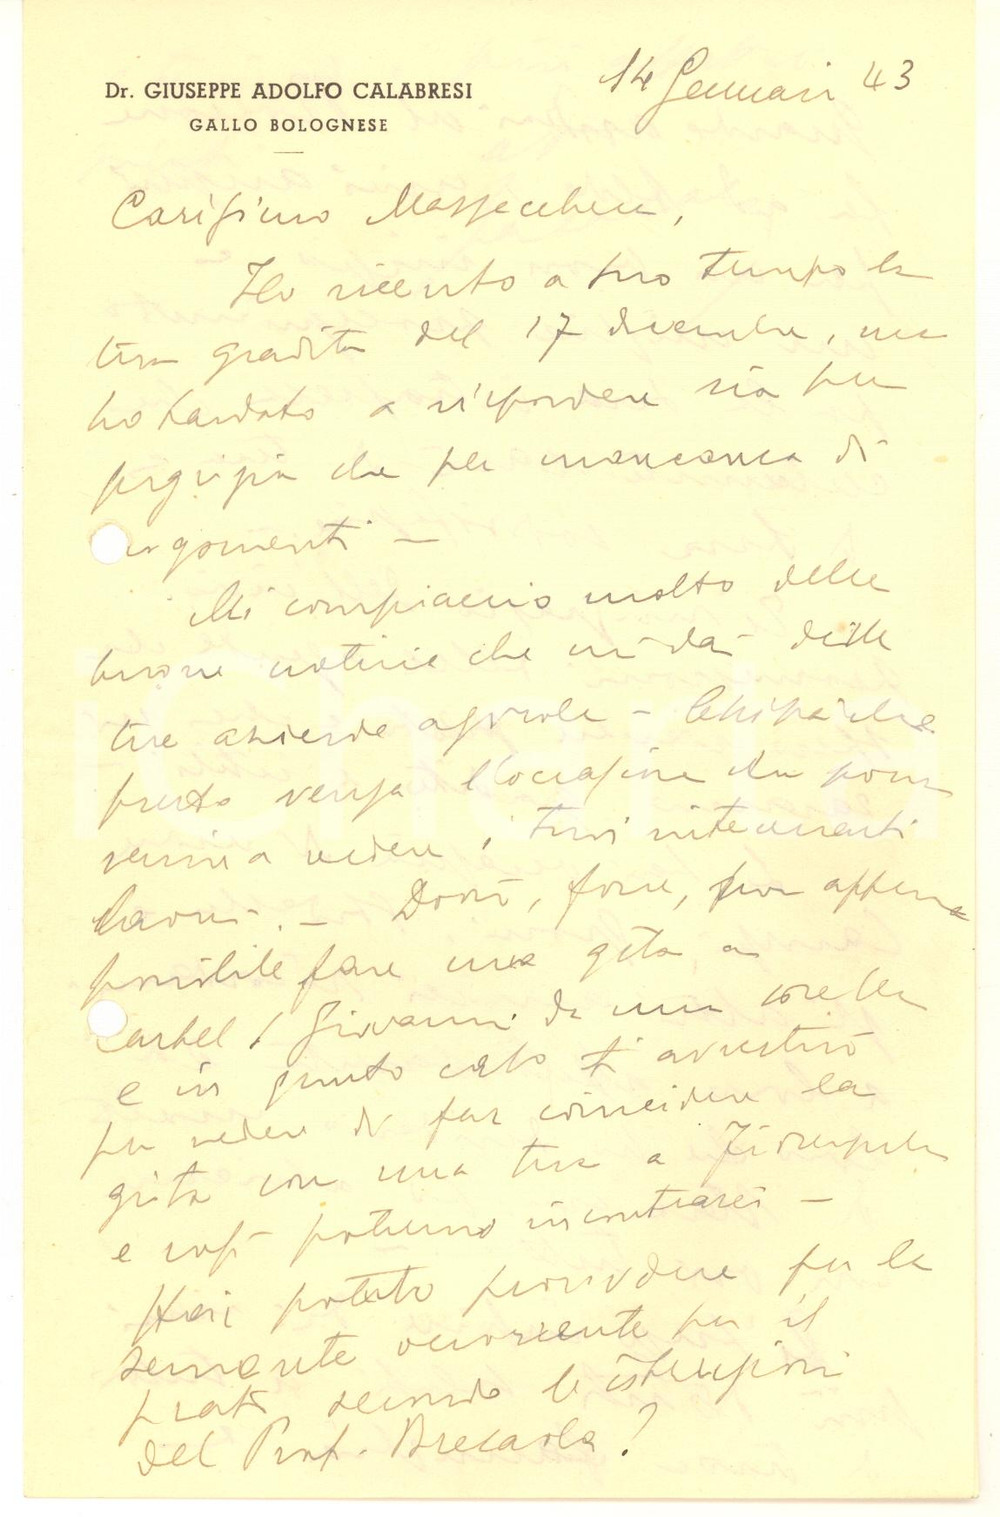 Dr. GIUSEPPE ADOLFO CALABRESI
GALLO BOLOGNESE
14 Gennaio 43
Carissimo
Ho ricevuto a suo tempo la
tua gradita del 17 dicembre, ma
ho tardato a rispondere sia per
pigrizia che per mancanza di
argomenti -
Mi compiaccio molto delle
buone notizie che mi dai delle
tue aziende agricole - Chissà che
presto venga l'occasione che possa
venire a vedere i tuoi
lavori. - Dovrò, forse, non appena
possibile fare una gita a
Castel S Giovanni da mia sorella
e in questo caso ti avvertirò
per vedere di far coincidere la
gita con una tua a Fiorenzuola
e così potremo incontrarci -
Hai potuto provvedere per la
semente occorrente per il
prato secondo le istruzioni
del Prof. ?